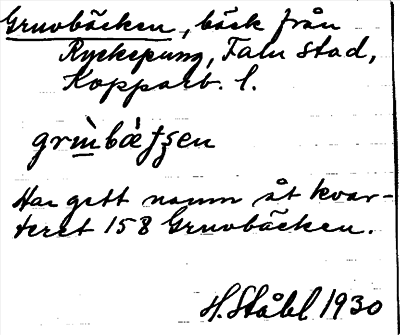 Gruvbäcken, bäck från
Ryckepung, Falu stad,
Kopparb. l.
Har gett namn åt kvar-
teret 158 Gruvbäcken.
H. Ståhl 1930